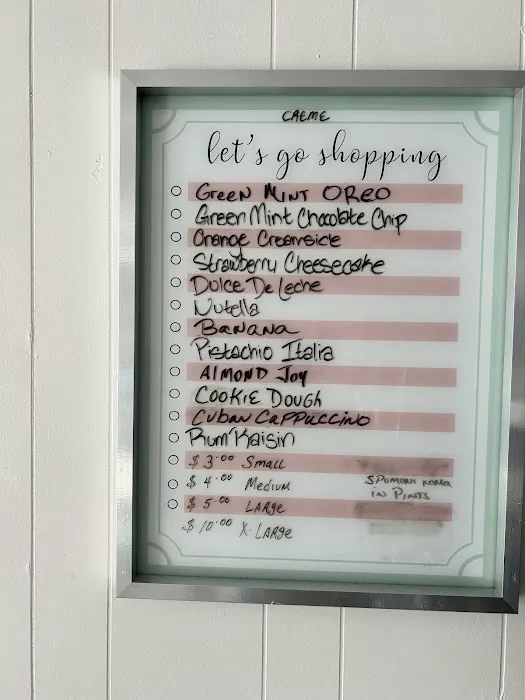 CREME
let's go shopping
GREEN MINT OREO
Green Mint Chocolate Chip
Orange Creamsicle
Strawberry Cheesecake
Dulce De Leche
Nutella
BANANA
Pistachio Italia
ALMOND Joy
COOKIE DOUGH
CUBAN CAPPUCCINO
Rum Raisin
$3.00 Small
$4.00 Medium
SPUMONI
IN PINTS
$5.00 LARGE
$10.00 X-LARGE